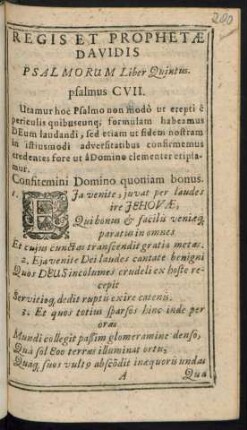 200
REGIS ET PROPHETÆ
DAVIDIS
PSALMORUM Liber Quintus.
psalmus CVII.
Utamur hoc Psalmo non modò ut erepti è
periculis quibuscunq; formulam habeamus
DEum laudandi, sed etiam ut fidem nostram
in istiusmodi adversitatibus confirmemus
credentes fore ut à Domino clementer eripia-
mur.
Confitemini Domino quoniam bonus.
1. EJa venite, juvat per laudes
ire JEHOVÆ,
Qui bonus & facilis veniaq;
paratus in omnes
Et cujus cunctas transcendit gratia metas.
2. Eja venite Dei laudes cantate benigni
Quos DEUS incolumes crudeli ex hoste re-
cepit
Servitioq; dedit ruptis exire catenis.
3. Et quos totius sparsos hinc inde per
oras
Mundi collegit passim glomeramine denso,
Quâ sol Eoo terras illuminat ortu,
Quaq; suos vultus abscōdit inæquoris undas
A Qua